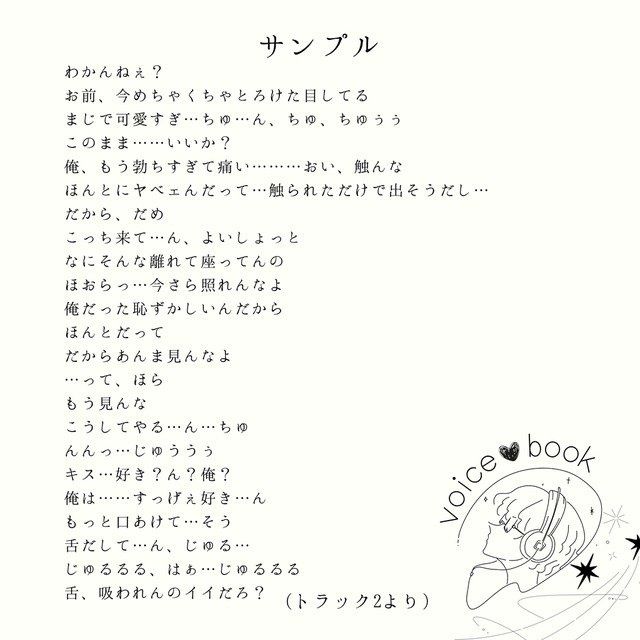 サンプル
わかんねぇ？
お前、今めちゃくちゃとろけた目してる
まじで可愛すぎ…ちゅ…ん、ちゅ、ちゅぅぅ
このまま……いいか？
俺、もう勃ちすぎて痛い………おい、触んな
ほんとにヤベェんだって…触られただけで出そうだし…
だから、だめ
こっち来て…ん、よいしょっと
なにそんな離れて座ってんの
ほおらっ…今さら照れんなよ
俺だった恥ずかしいんだから
ほんとだって
だからあんま見んなよ
…って、ほら
もう見んな
こうしてやる…ん…ちゅ
んんっ…じゅううぅ
キス…好き？ん？俺？
俺は……すっげぇ好き…ん
もっと口あけて…そう
舌だして…ん、じゅる…
じゅるるる、はぁ…じゅるるる
舌、吸われんのイイだろ？
(トラック2より)
voice book